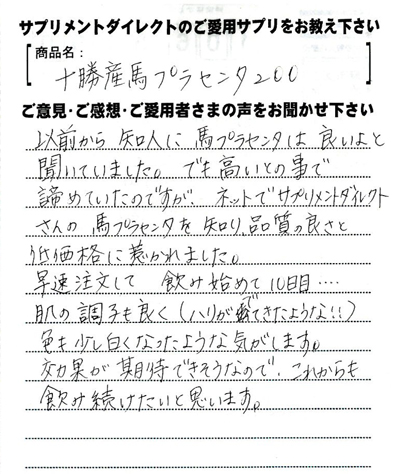 サプリメントダイレクトのご愛用サプリをお教え下さい
商品名：
十勝産馬プラセンタ200
ご意見・ご感想・ご愛用者さまの声をお聞かせ下さい
以前から 知人に 馬プラセンタは 良いよと
聞いていました。でも高いとの事で
諦めていたのですが、ネットでサプリメントダイレクト
さんの 馬プラセンタを 知り、品質の良さと
低価格に惹かれました。
早速注文して 飲み始めて 10日目‥‥
肌の調子も良く（ハリがでてきたような!!）
色も少し白くなったような気がします。
効果が期待できそうなので、これからも
飲み続けたいと思います。